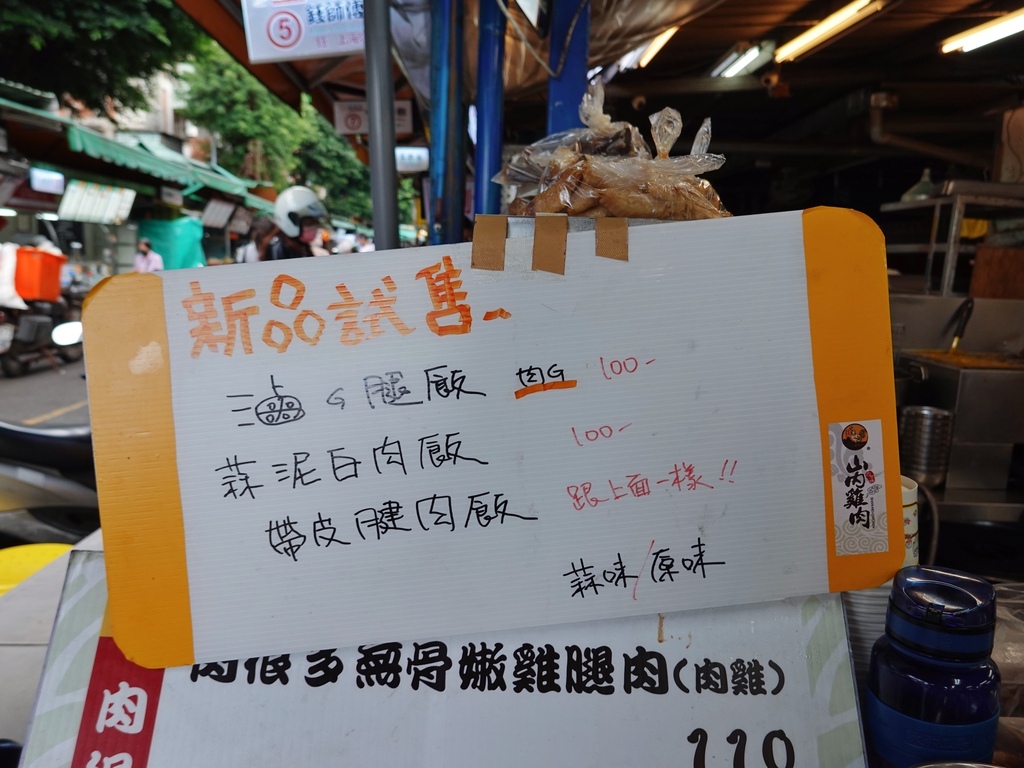 ⑤
新品試售
滷G腿飯 肉G 100-
蒜泥白肉飯 100-
帶皮腱肉飯 跟上面一樣!!
蒜味/原味
山內雞肉
肉很多無骨嫩雞腿肉(肉雞)
肉
110